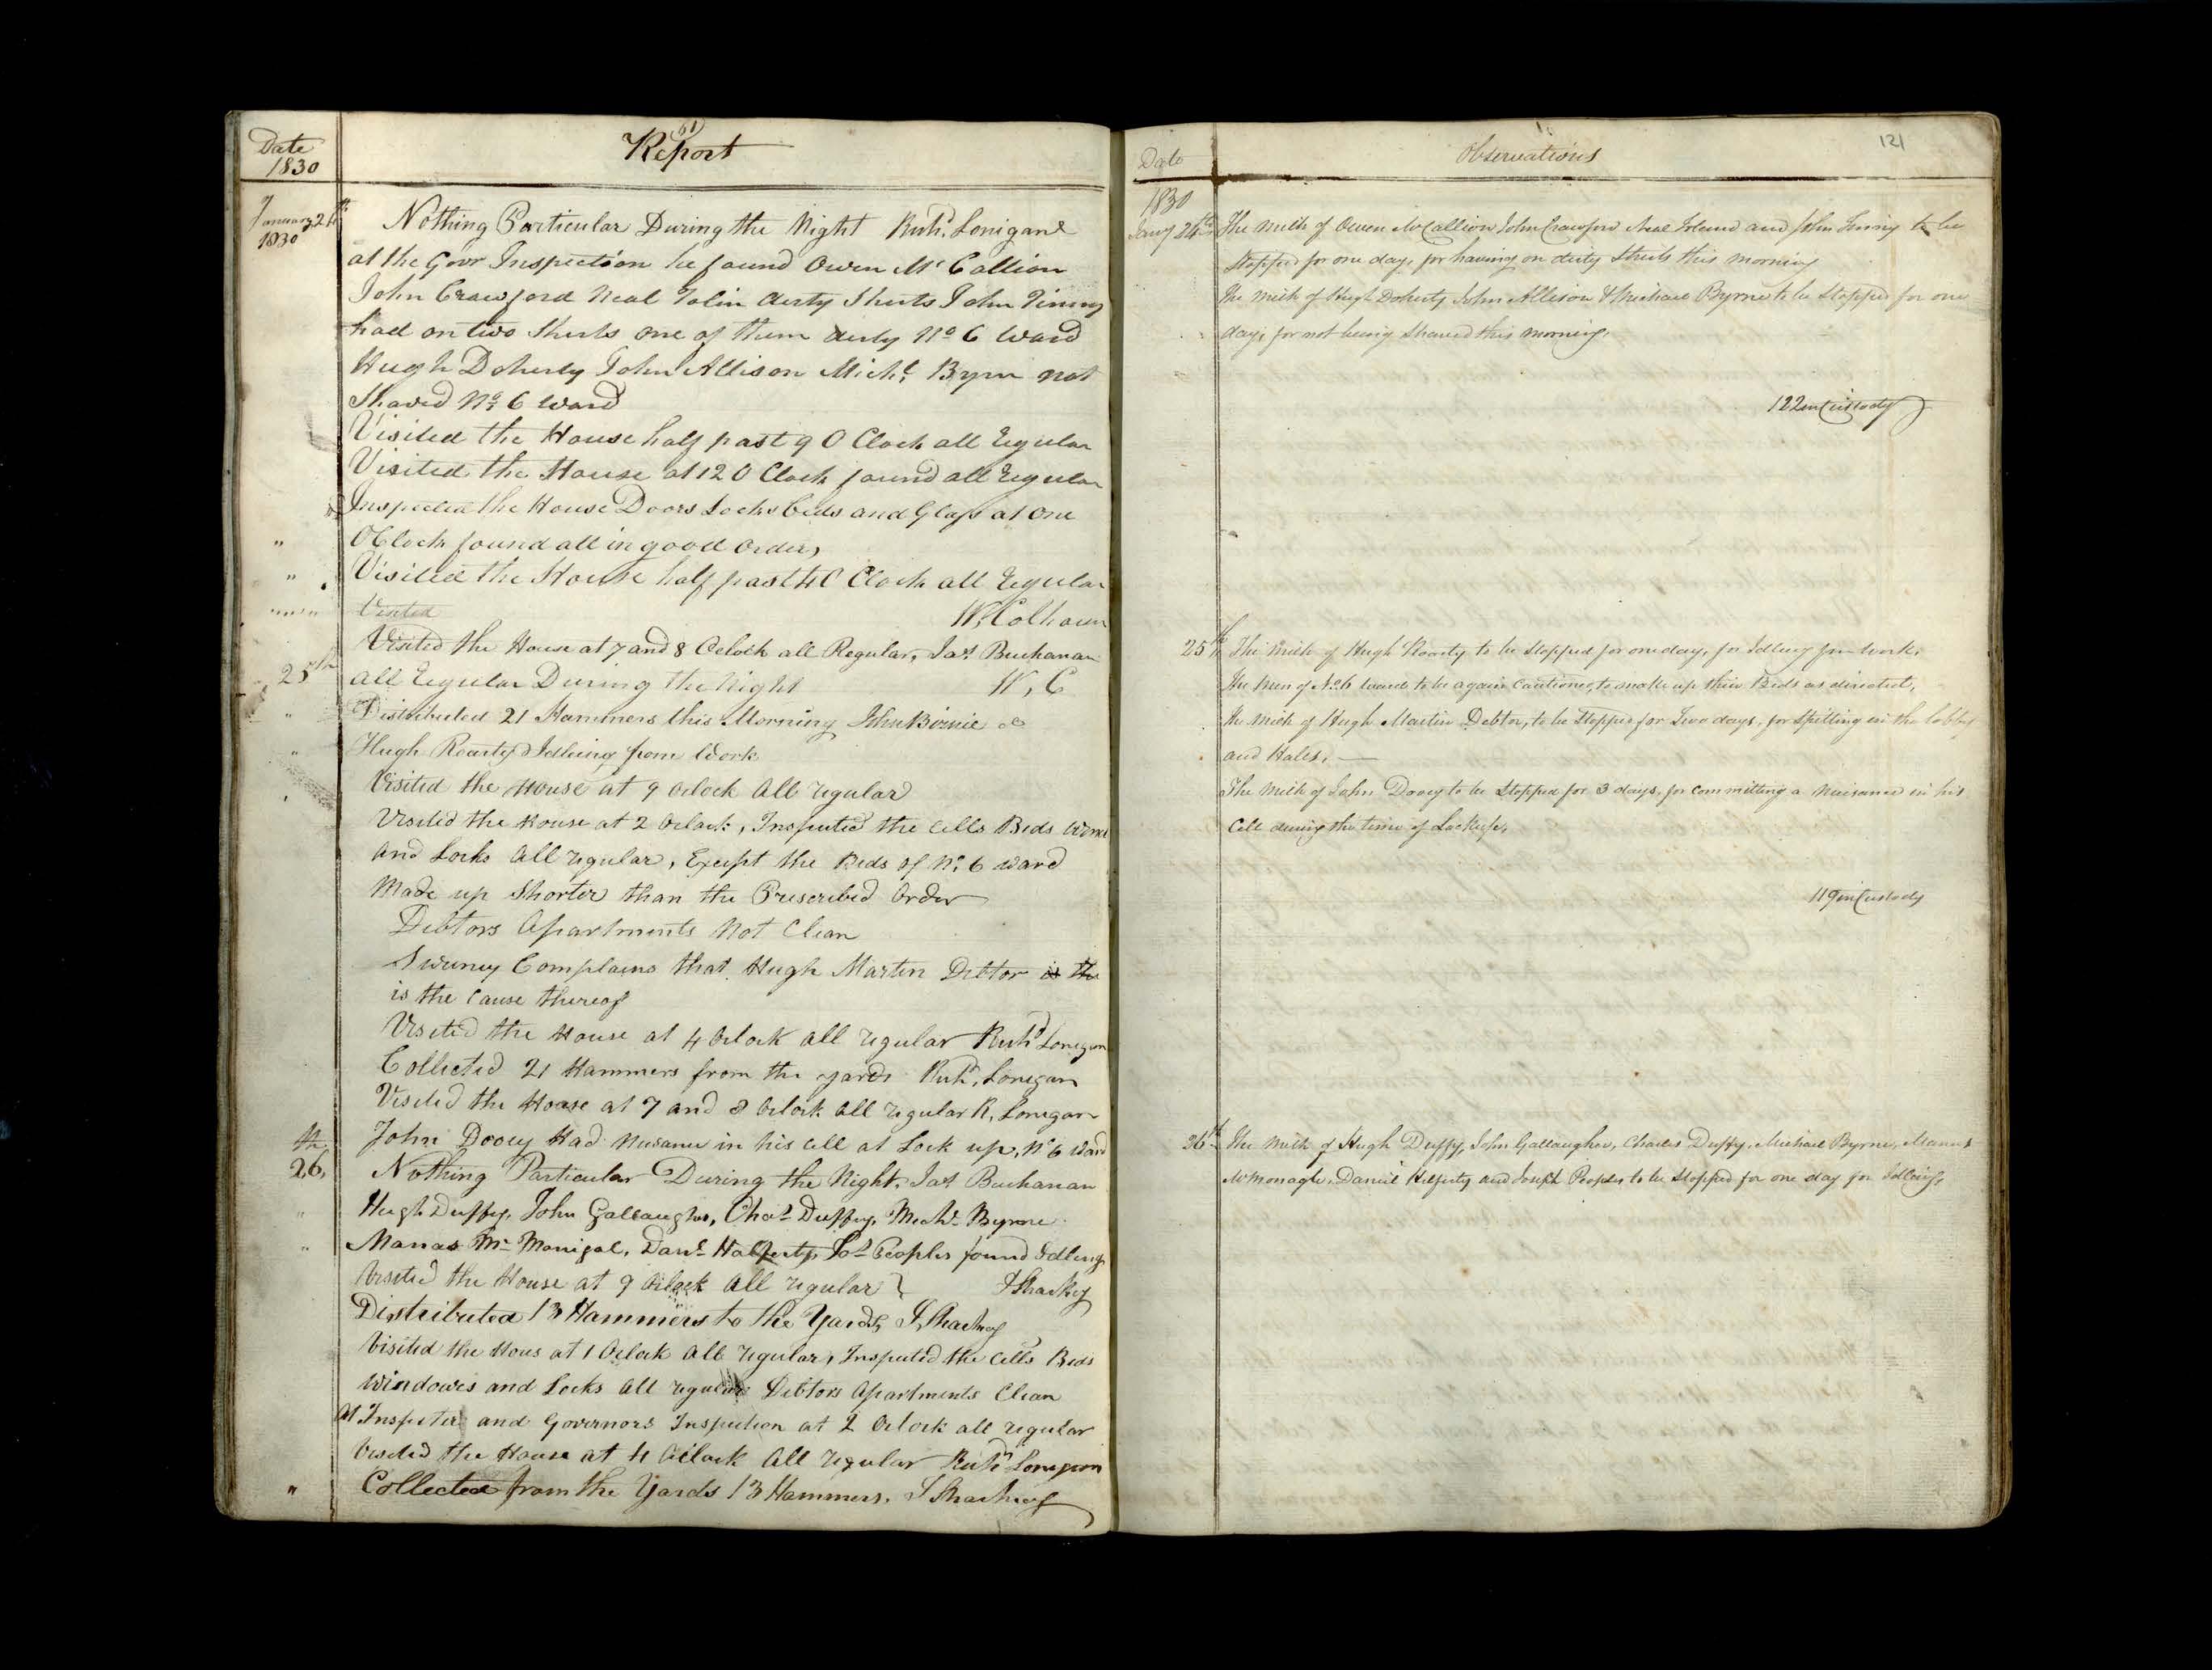 Date
1830
61
Report
January 24th
1830
Nothing Particular During the Night Richd. Lonigan
at the Govr Inspection he found Owen Mc Callion
John Crawford Neal Tolin dirty Shirts John Tinny
had on two Shirts one of them dirty No 6 Ward
Hugh Doherty John Allison Michl. Byrn not
Shaved No. 6 Ward
Visited the House half past 9 O Clock all regular
Visited the House at 12 O Clock found all regular
Inspected the House Doors Locks beds and Glass at One
O Clock found all in good Order,
Visited the House half past 4 O Clock all regular
Visited
W. Colhoun
Visited the House at 7 and 8 Oclock all Regular, Jas. Buchanan
25th
all regular During the Night W, C
Distributed 21 Hammers this Morning John Birnie
Hugh Roarty Idleing from Work
Visited the House at 9 Oclock All regular
Visited the House at 2 Oclock, Inspected the Cells Beds
and Locks All regular, Except the Beds of No. 6 ward
Made up Shorter than the Prescribed Order
Debtors Apartments Not Clean
Sweeney Complains that Hugh Martin Debtor is the
is the Cause thereof
Visited the House at 4 Oclock All regular Richd Lonigan
Collected 21 Hammers from the yards Richd. Lonigan
Visited the House at 7 and 8 Oclock All regular R. Lonigan
John Dooey Had Nusance in his Cell at Lock up, No 6 Ward
26th
Nothing Particular During the Night. Jas Buchanan
Hugh Duffy, John Gallaugher, Chas Duffy, Michl. Byrne
Manas Mc Monigal, Danl Halferty, Jos Peoples found Idleing
Visited the House at 9 Oclock All regular } J Sharkey
Distributed 13 Hammers to the Yards, J, Sharkey
Visited the Hous at 1 Oclock All regular, Inspected the Cells Beds
Windowes and Locks All regular Debtors Apartments Clean
At Inspecter and Governors Inspection at 2 Oclock all regular
Visited the House at 4 Oclock All regular Richd Lonigan
Collected from the Yards 13 Hammers. J Sharkey
Date
Observations
121
1830
Jany 24th
The Milk of Owen McCallion John Crawford Neal and John Tinny to be
Stopped for one day, for having on dirty Shirts this morning
The Milk of Hugh Doherty John Allison & Michael Byrne to be Stopped for one
day, for not being Shaved this morning.
122 in Custody
25th
The Milk of Hugh Roarty to be Stopped for one day, for Idleing from work.
The Men of No. 6 ward to be again Cautioned, to make up their Beds as directed,
The Milk of Hugh Martin Debtor, to be Stopped for Two days, for Spitting in the lobbys
and Halls. —
The Milk of John Dooey to be Stopped for 3 days, for Committing a Nuisance in his
Cell during the time of Lockup.
119 in Custody
26th
The Milk of Hugh Duffy, John Gallaugher, Charles Duffy, Michael Byrne, Manus
McMonagle, Daniel Helferty and Joseph Peoples to be Stopped for one day for Idleing,